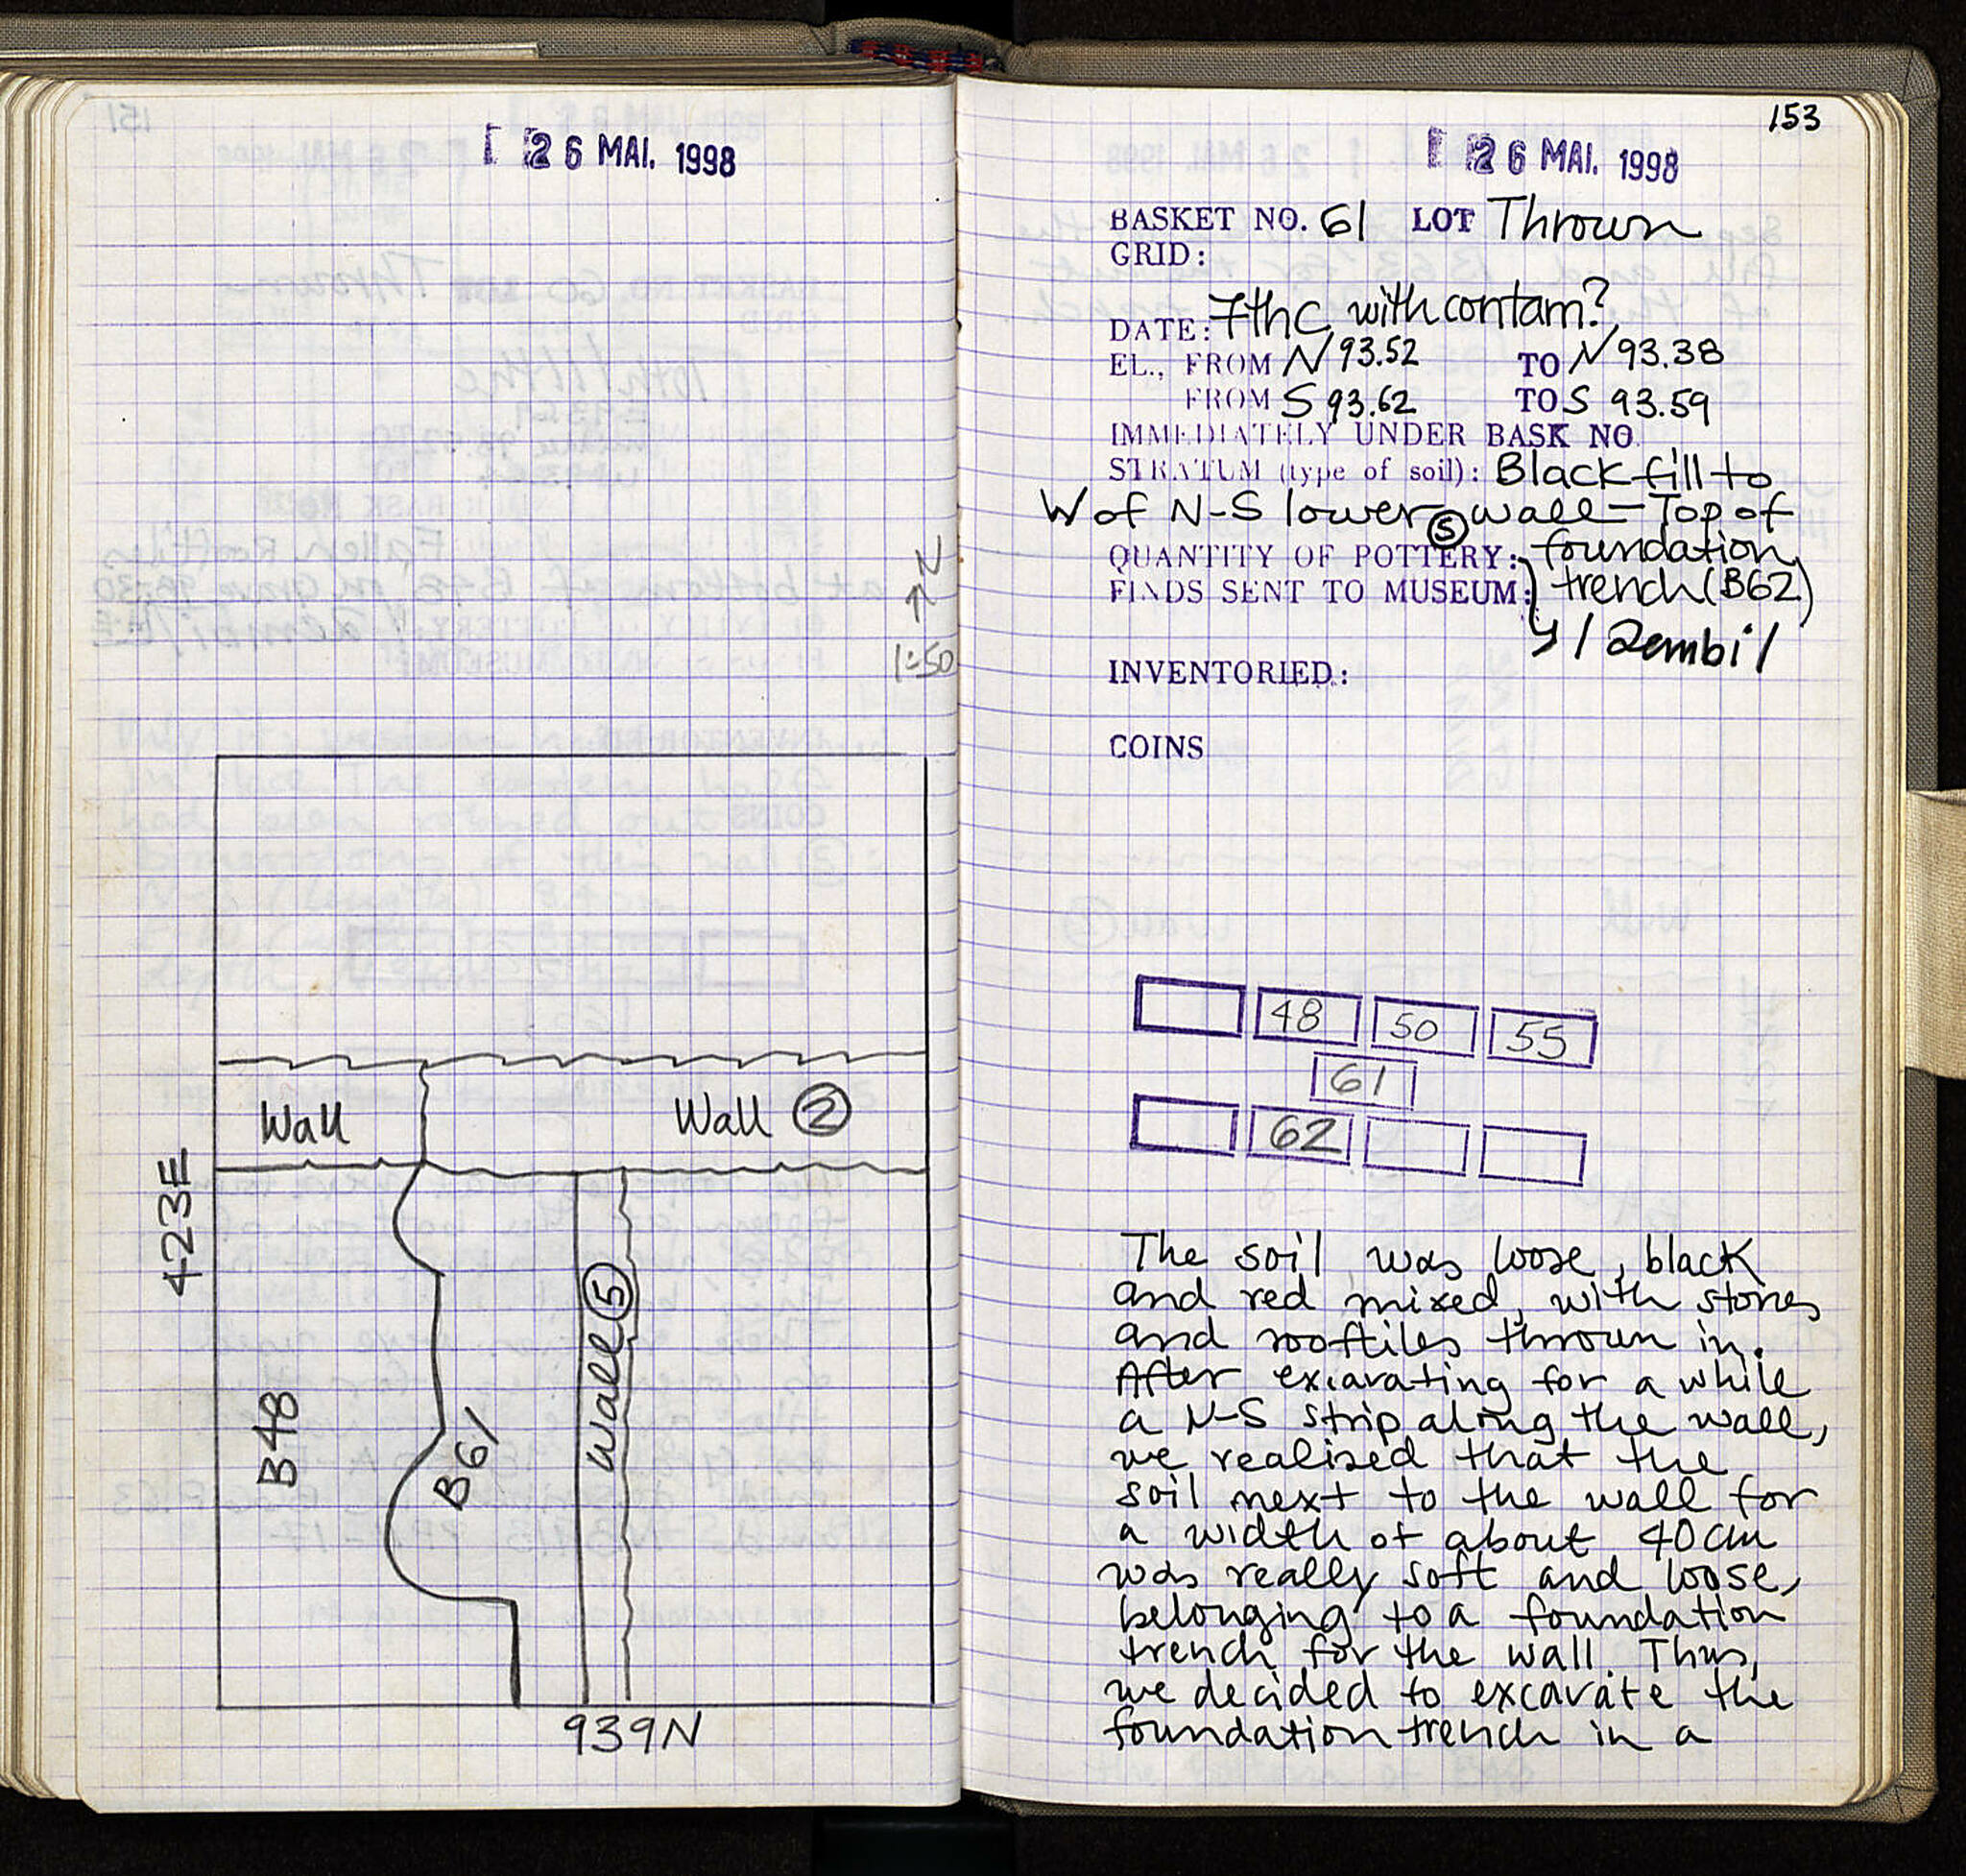 26 MAI. 1998
N
1:50
Wall
Wall ②
423E
Wall ⑤
B48
B61
939N
153
26 MAI. 1998
BASKET NO. 61 LOT Thrown
GRID:
DATE: 7thC, with contam?
EL., FROM N 93.52 TO N 93.38
FROM S 93.62 TO S 93.59
IMMEDIATELY UNDER BASK NO.
STRATUM (type of soil): Black fill to
W of N-S lower ⑤ wall - Top of
QUANTITY OF POTTERY: foundation
FINDS SENT TO MUSEUM: trench (B62)
1 Zembil
INVENTORIED:
COINS
48 50 55
61
62
The soil was loose, black
and red mixed, with stones
and rooftiles thrown in.
After excavating for a while
a N-S strip along the wall,
we realized that the
soil next to the wall for
a width of about 40cm
was really soft and loose,
belonging to a foundation
trench for the wall. Thus,
we decided to excavate the
foundation trench in a